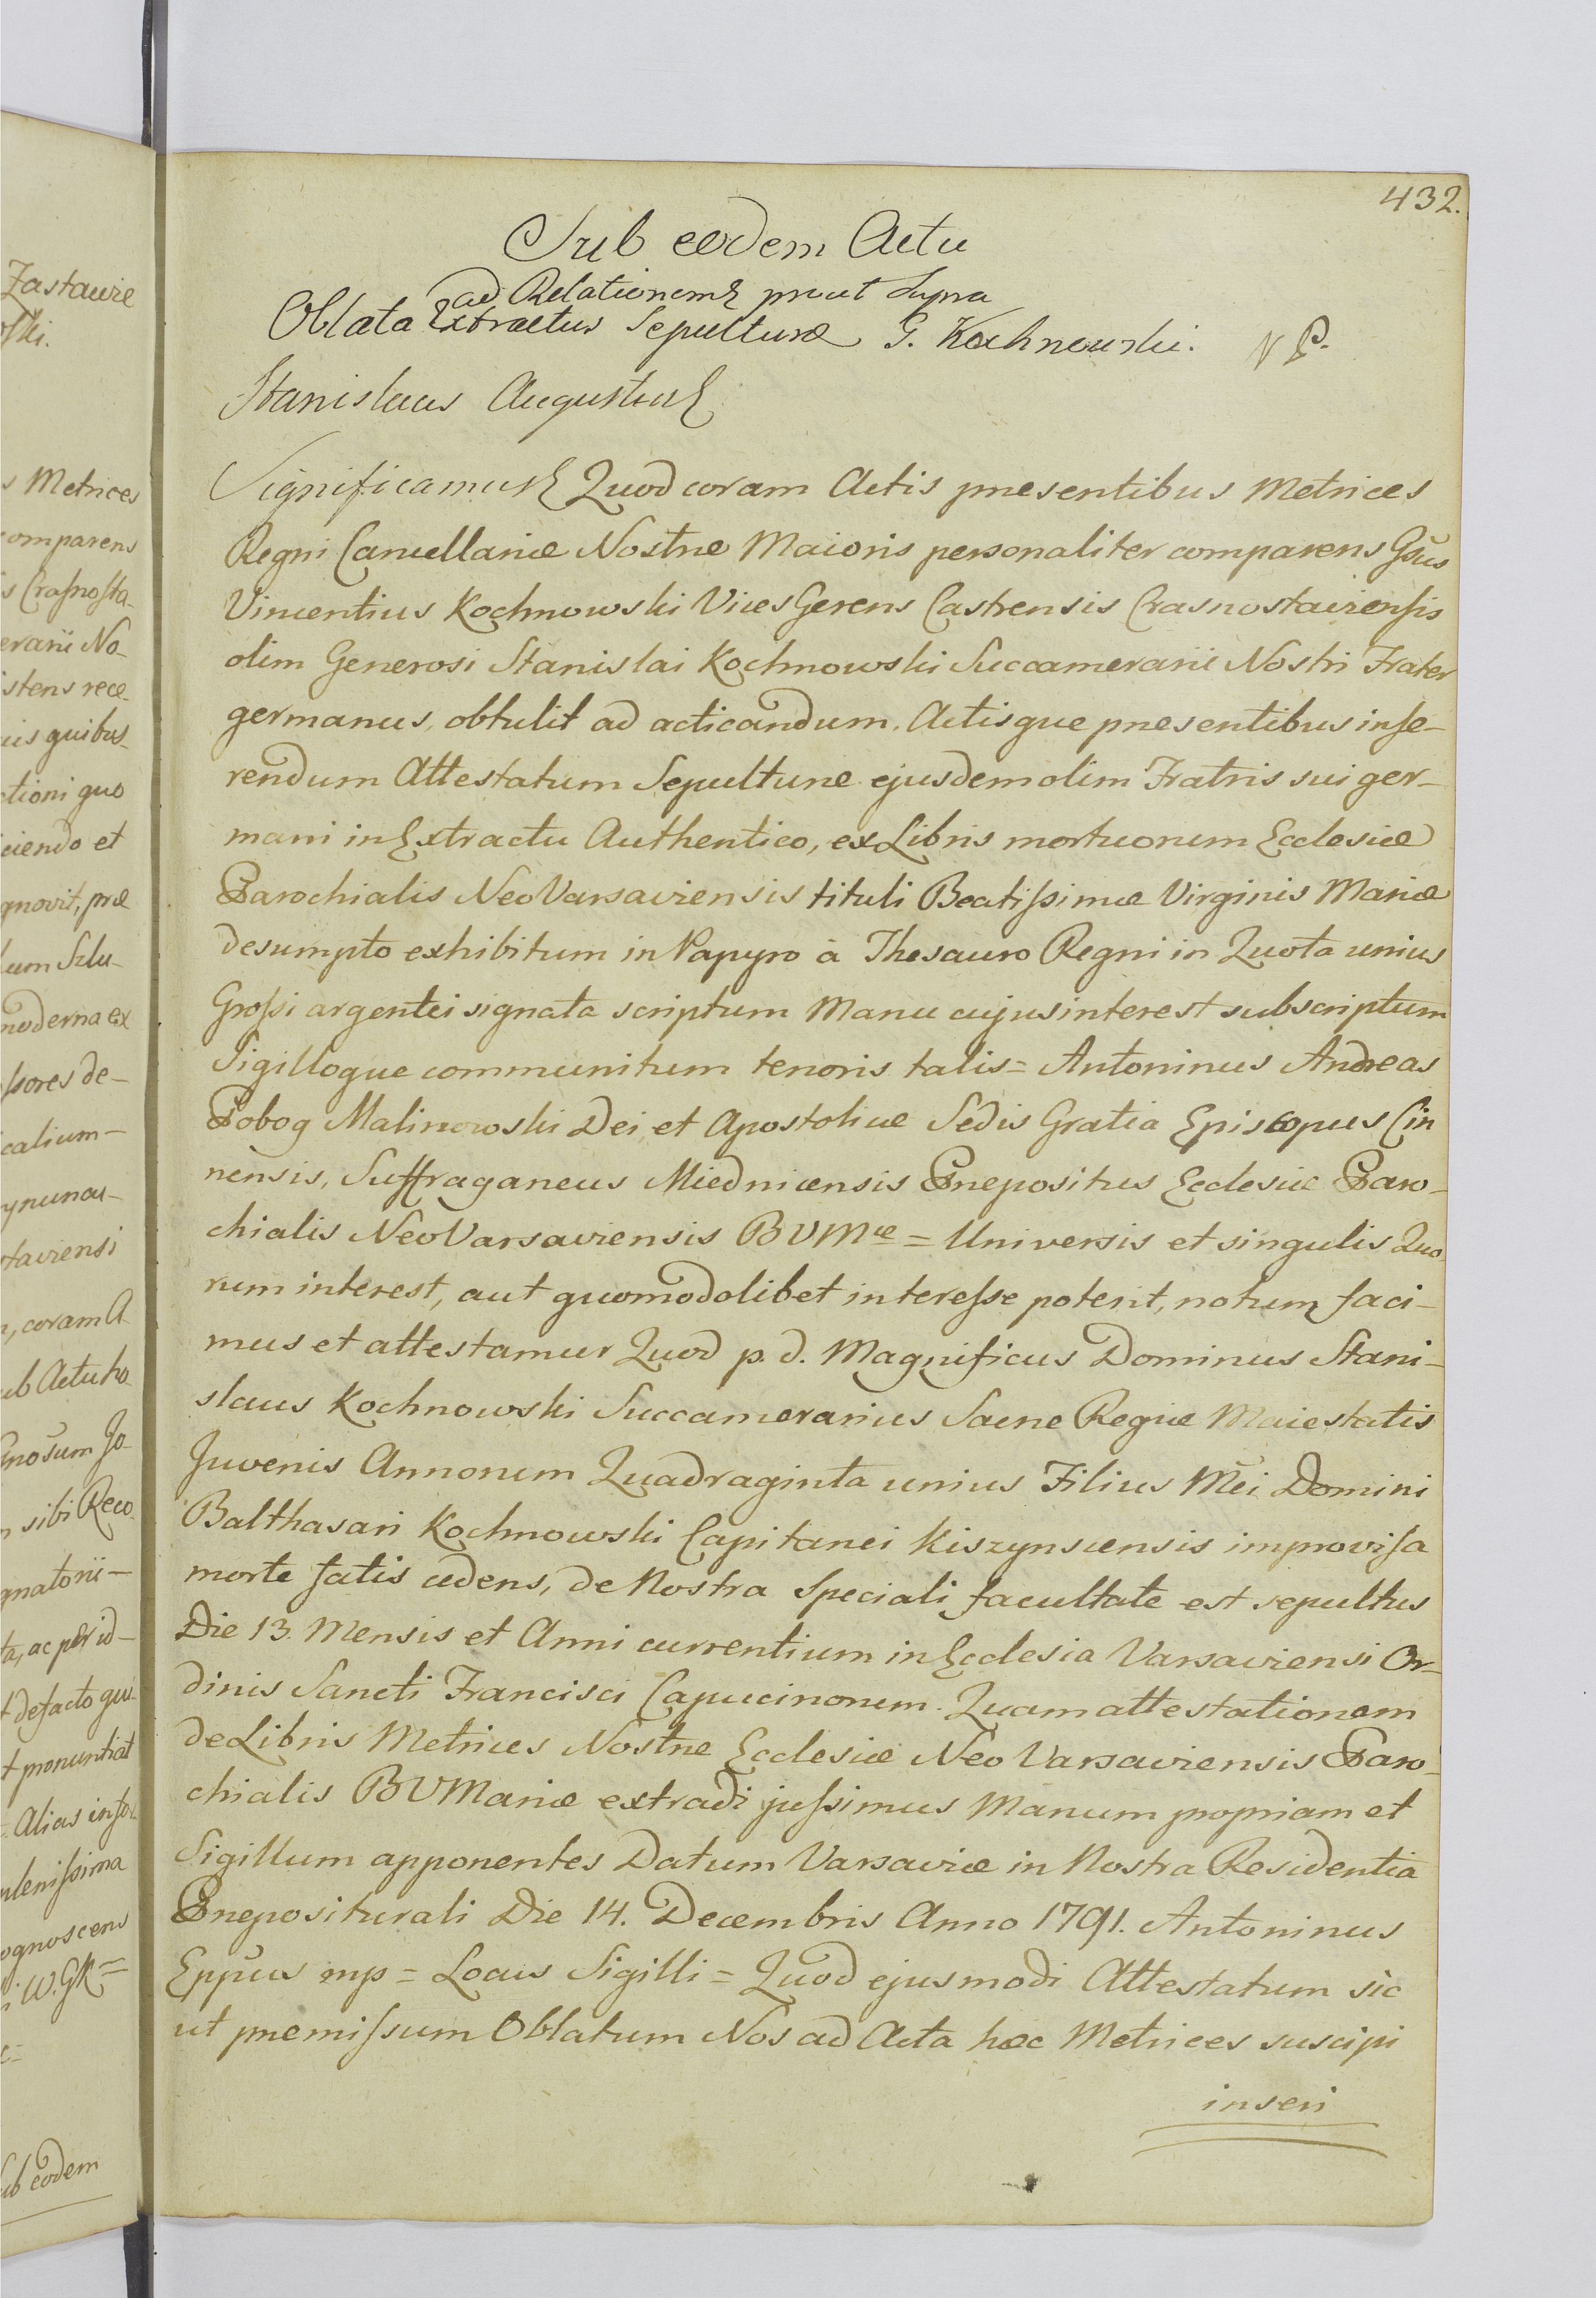 Zastawie
ski.
s Metrices
comparens
s Crasnosta-
erarii No-
istens rece-
uis quibus-
ctioni quo
ciendo et
gnovit, præ
lum Szlu-
moderna ex
ssores de-
icalium-
staviensi
n, coram A-
ub Actu ho-
Gnosum Jo-
n sibi Reco-
gnatorii-
ta, ac per id-
t de facto qui-
t pronuntiat
= Alias infor-
plenissima
ognoscens
i W.GR=
Sub eodem
432.
Sub eodem Actu
ad Relationem& prout supra
Oblata Extractus Sepulturæ G. Kochnowski. N P.
Stanislaus Augustus&
Significamus& Quod coram Actis præsentibus Metrices
Regni Cancellariæ Nostræ Maioris personaliter comparens Gsus
Vincentius Kochnowski Vices Gerens Castrensis Crasnostaviensis
olim Generosi Stanislai Kochnowski Succamerarii Nostri Frater
germanus, obtulit ad acticandum, Actisque præsentibus inse-
rendum Attestatum Sepulturæ ejusdem olim Fratris sui ger-
mani in Extractu Authentico, ex Libris mortuorum Ecclesiæ
Parochialis NeoVarsaviensis tituli Beatissimæ Virginis Mariæ
desumpto exhibitum in Papyro à Thesauro Regni in Quota unius
Grossi argentei signata scriptum Manu cujus interest subscriptum
Sigilloque communitum tenoris talis= Antoninus Andreas
Pobog Malinowski Dei et Apostolicæ Sedis Gratia Episcopus Cin
nensis, Suffraganeus Miednicensis Præpositus Ecclesiæ Paro-
chialis NeoVarsaviensis BVMæ = Universis et singulis Quo-
rum interest, aut quomodolibet interesse poterit, notum faci-
mus et attestamur Quod p. d. Magnificus Dominus Stani-
slaus Kochnowski Succamerarius Sacræ Regiæ Maiestatis
Juvenis Annorum Quadraginta unius Filius Mei Domini
Balthasari Kochnowski Capitanei Kiszynscensis improvisa
morte fatis cedens, de Nostra Speciali facultate est sepultus
Die 13. Mensis et Anni currentium in Ecclesia Varsaviensi Or-
dinis Sancti Francisci Capucinorum. Quam attestationem
de Libris Metrices Nostræ Ecclesiæ Neo Varsaviensis Paro-
chialis BVMariæ extradi jussimus Manum propriam et
Sigillum apponentes Datum Varsaviæ in Nostra Residentia
Præpositurali Die 14. Decembris Anno 1791. Antoninus
Eppus mp = Locus Sigilli = Quod ejusmodi Attestatum sic
ut præmissum Oblatum Nos ad Acta hæc Metrices suscipi
inseri